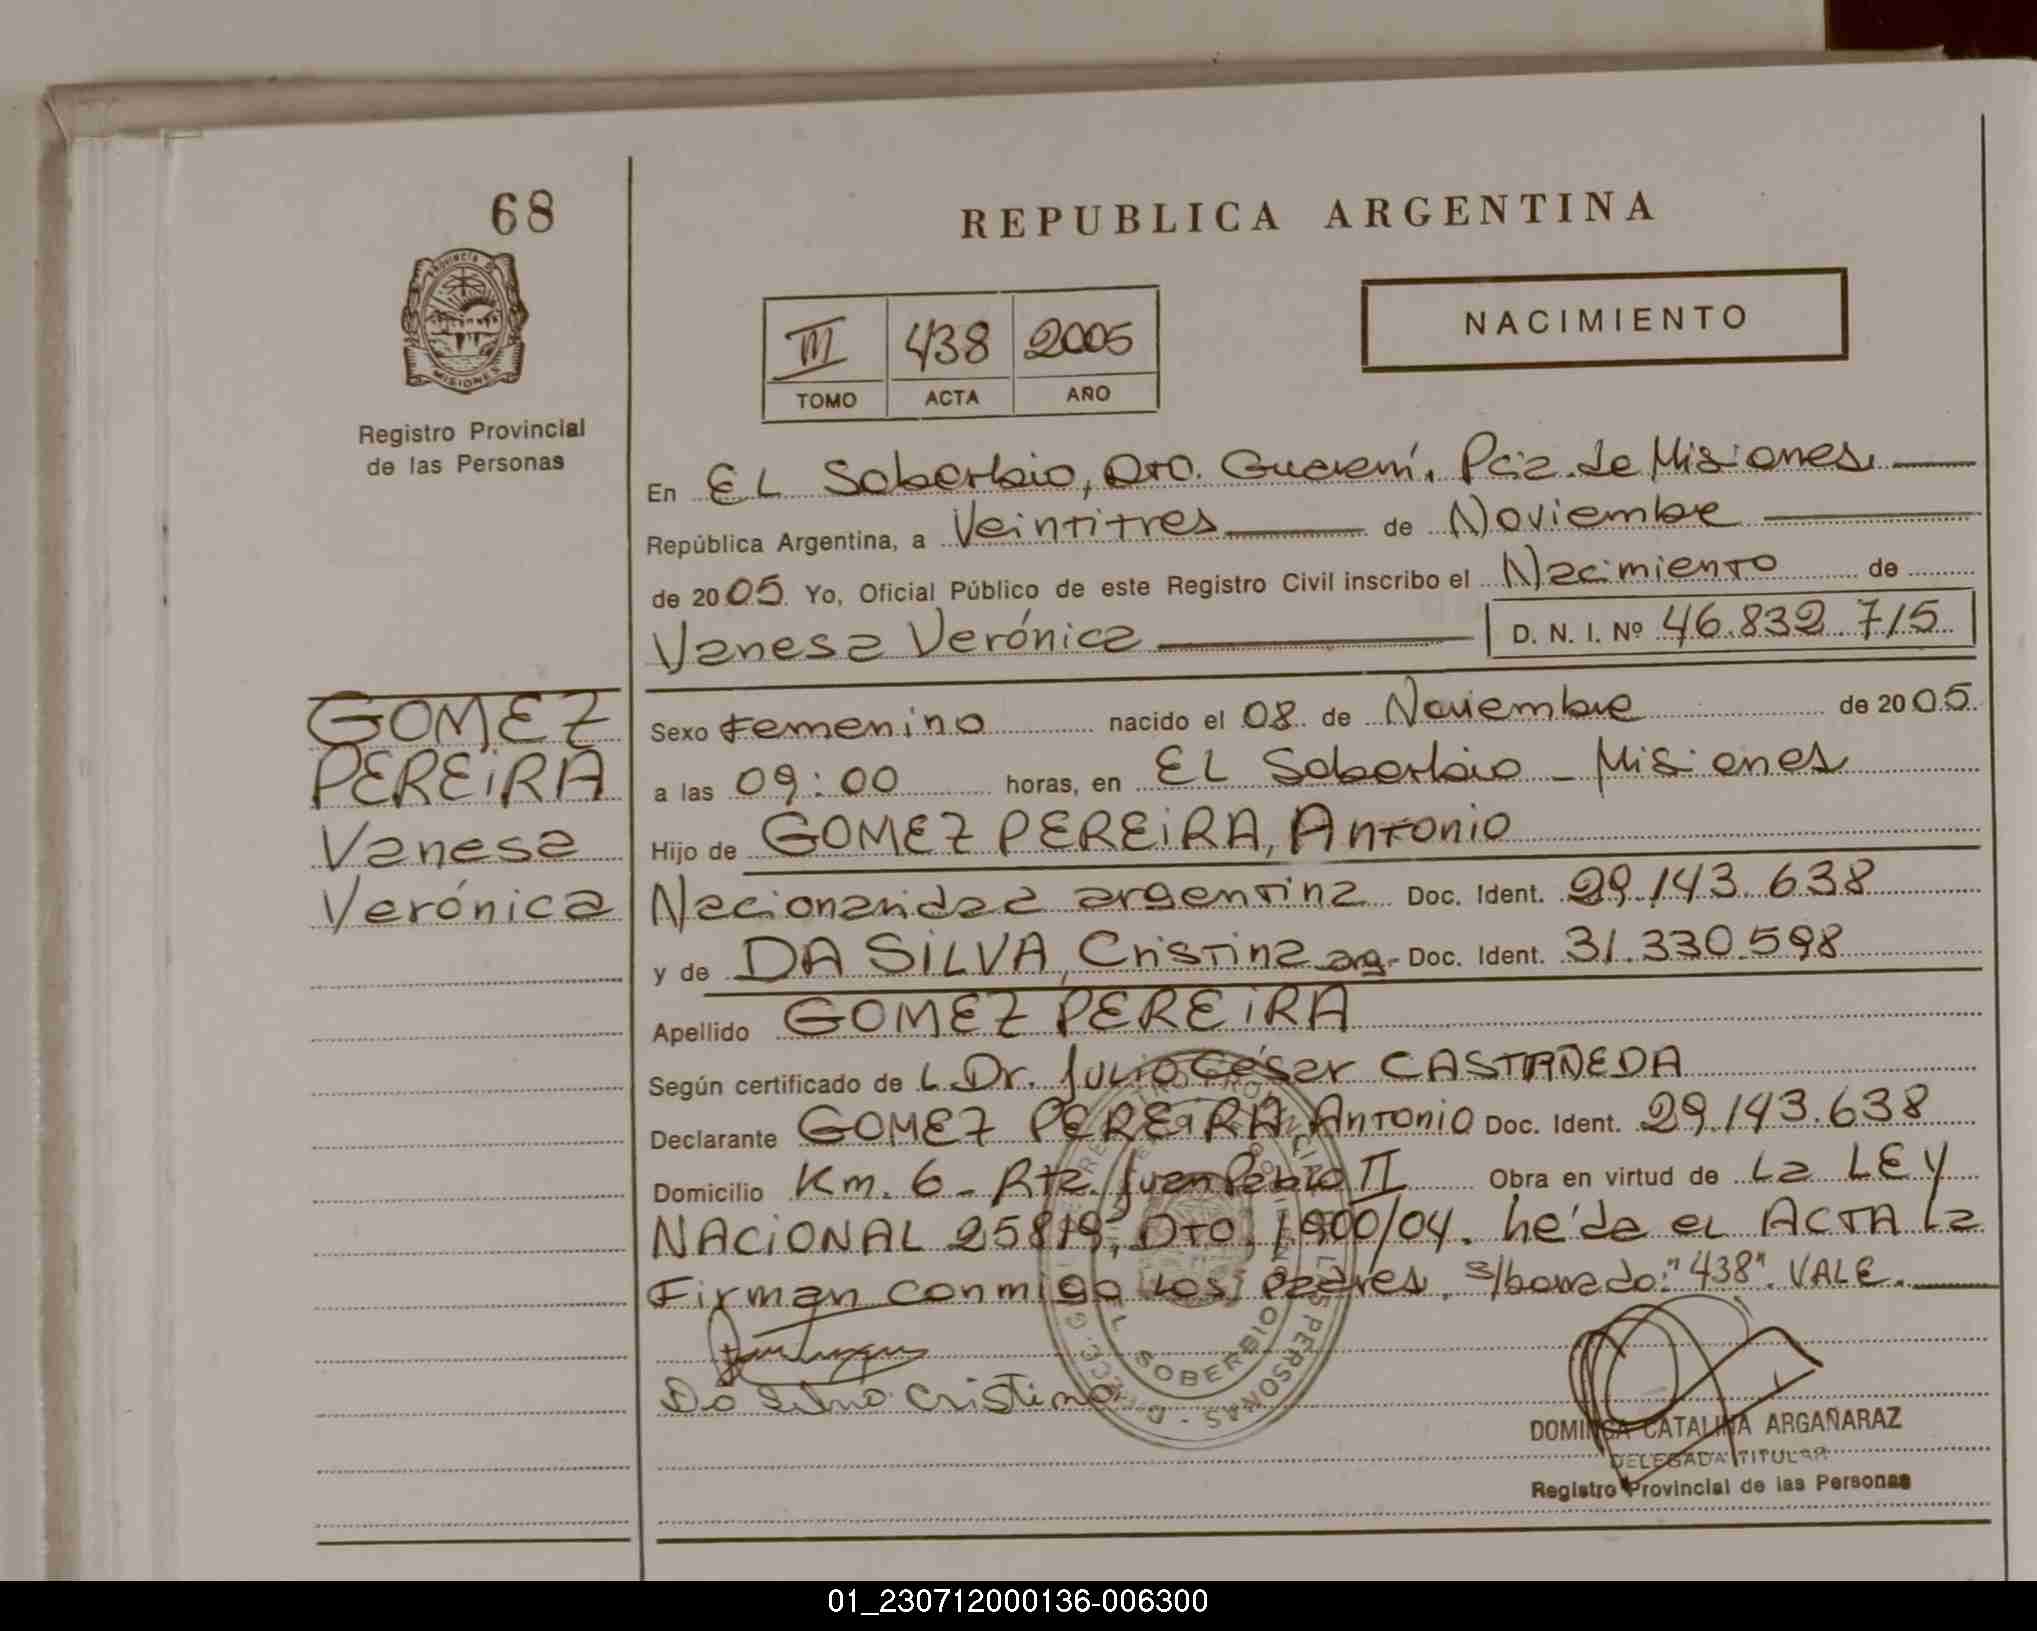 68
PROVINCIA DE
MISIONES
Registro Provincial
de las Personas
REPUBLICA ARGENTINA
III 438 2005
TOMO ACTA AÑO
NACIMIENTO
En EL Soberbio, Dto. Guaraní. Pcia. de Misiones.
República Argentina, a Veintitres de Noviembre
de 2005. Yo, Oficial Público de este Registro Civil inscribo el Nacimiento de
Vanesa Verónica D. N. I. Nº 46.832.715
GOMEZ
PEREIRA
Vanesa
Verónica
Sexo Femenino nacido el 08 de Noviembre de 2005
a las 09:00 horas, en EL Soberbio - Misiones
Hijo de GOMEZ PEREIRA, Antonio
Nacionalidad argentina Doc. Ident. 29.143.638
y de DA SILVA, Cristina arg. Doc. Ident. 31.330.598
Apellido GOMEZ PEREIRA
Según certificado de L Dr. Julio César CASTAÑEDA
Declarante GOMEZ PEREIRA Antonio Doc. Ident. 29.143.638
Domicilio Km. 6 - Rta. Juan Pablo II Obra en virtud de La LEY
NACIONAL 25819, DTO. 1900/04. heída el ACTA La
Firman conmigo Los padres. s/borrado: "438". VALE.
Da Silva Cristina
EL SOBERBIO
DOMINGA CATALINA ARGAÑARAZ
DELEGADA TITULAR
Registro Provincial de las Personas
01_230712000136-006300